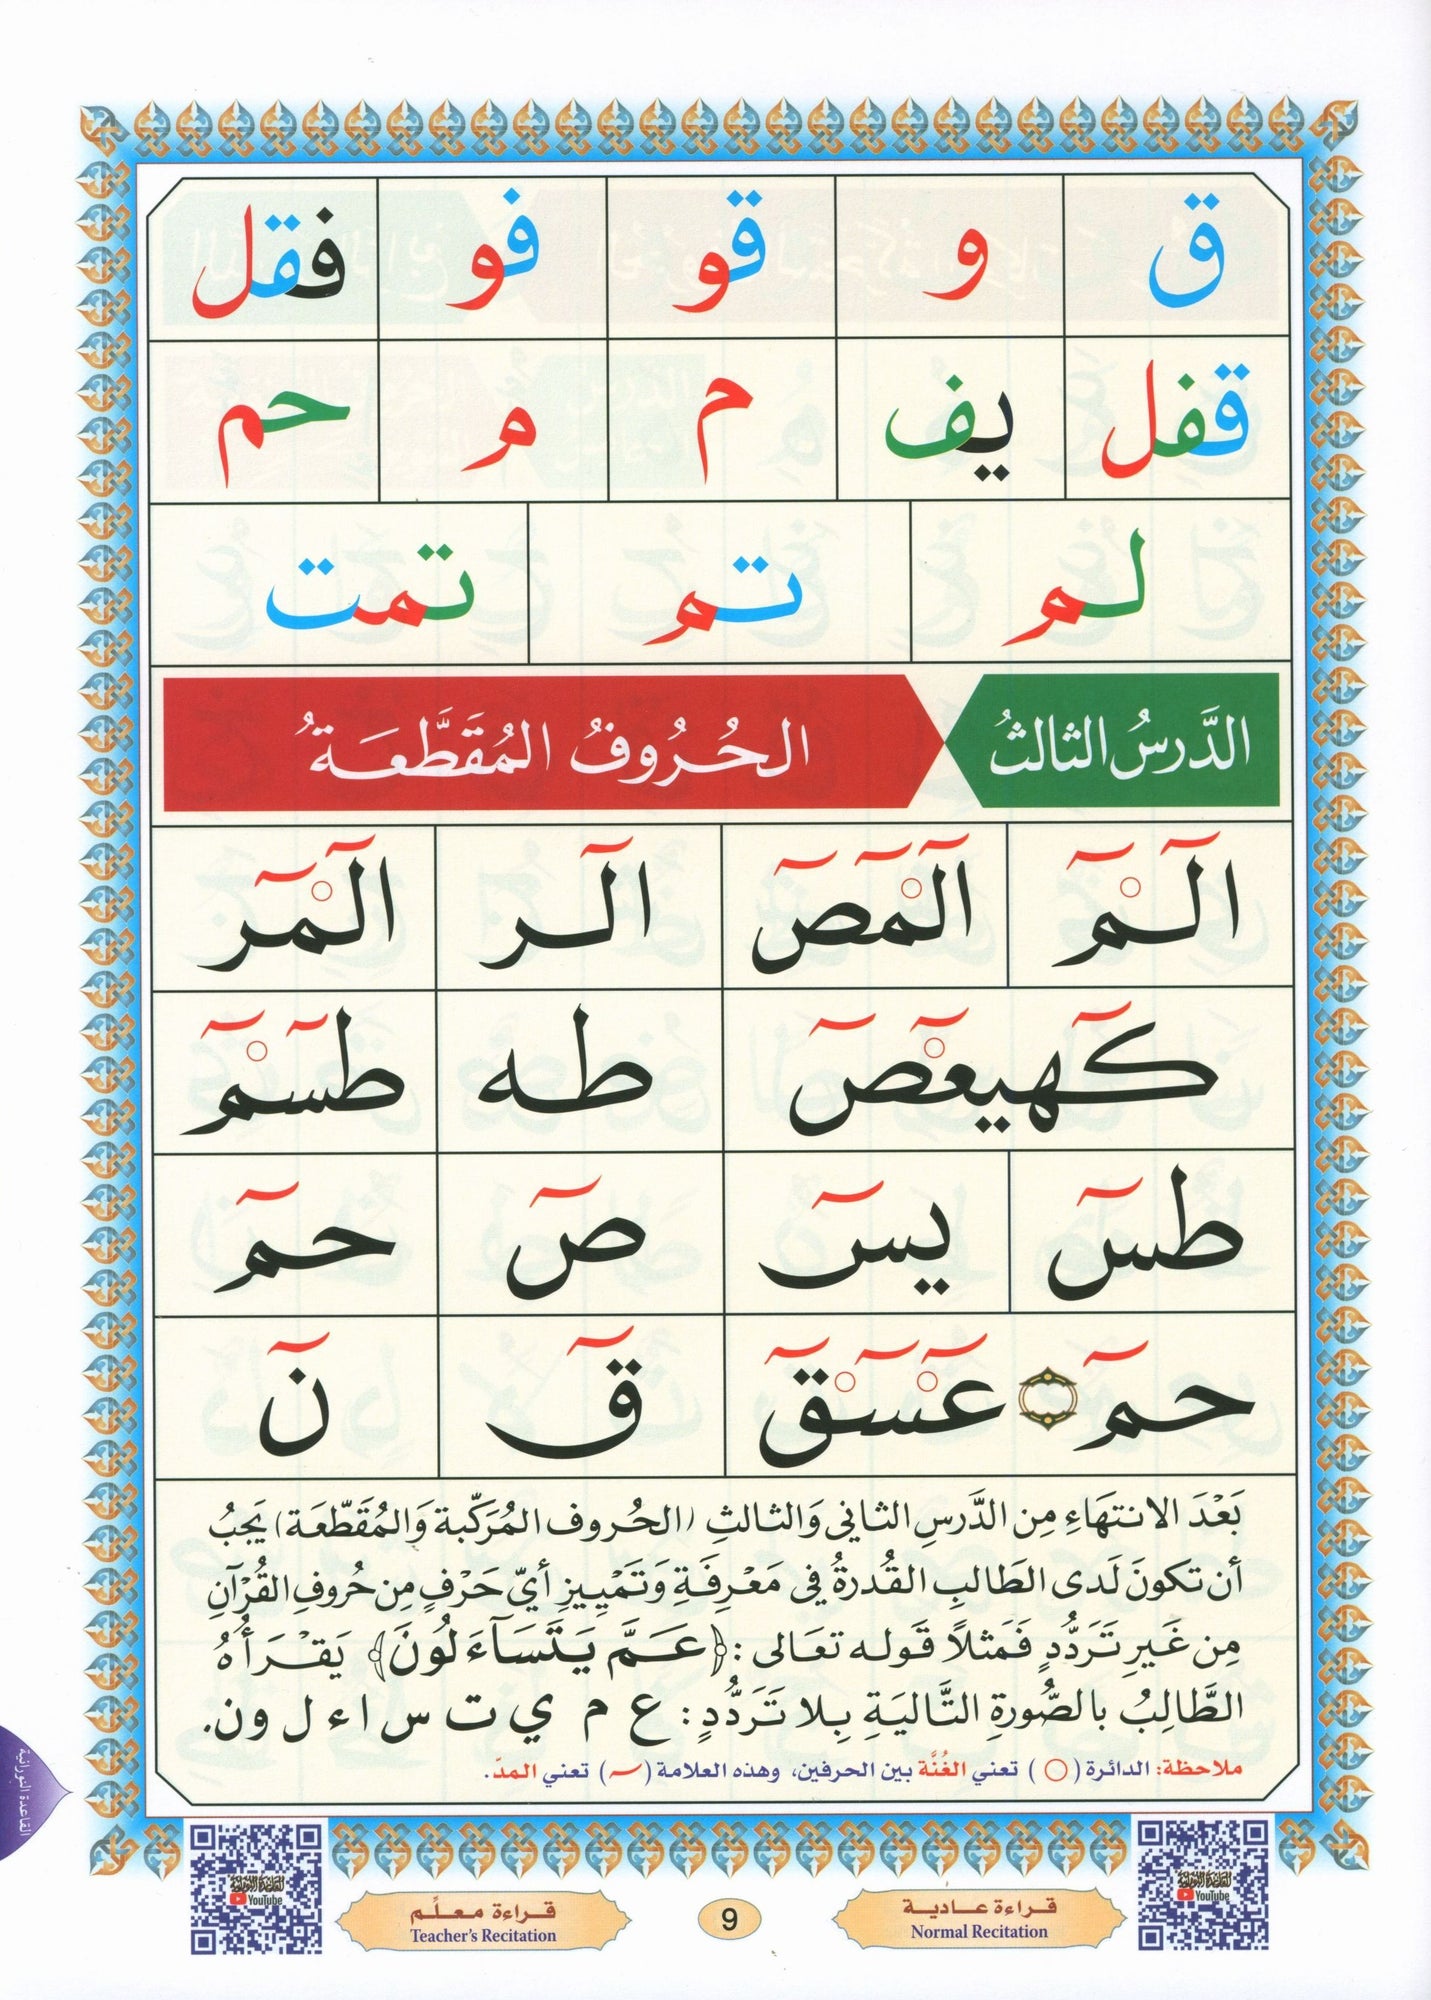 ق و قو فو فقل
قفل يف م م حم
لم تم تمت
الدَّرسُ الثالثُ الحُرُوفُ المُقَطَّعَةُ
الٓمٓ الٓمٓصٓ الٓر الٓمٓر
كٓهيعٓصٓ طه طسٓمٓ
طسٓ يسٓ صٓ حمٓ
حمٓ عٓسٓقٓ قٓ نٓ
بَعْدَ الانتهَاءِ مِن الدَّرسِ الثاني وَالثالثِ (الحُروف المُرَكّبة وَالمُقَطّعَة) يَجبُ
أن تكونَ لَدى الطَالبِ القُدرةُ في مَعْرفَةِ وَتَمْييزِ أيّ حَرْفٍ مِن حُروفِ القُرْآنِ
مِن غَيرِ تَرَدُّدٍ فَمَثلاً قَوله تعَالى : ﴿عَمَّ يَتَسَآءَلُونَ﴾ يَقـْرَأُهُ
الطَّالِبُ بالصُّورةِ التَّاليَةِ بِلا تَرَدُّدٍ : ع م ي ت س ا ء ل و ن.
ملاحظة: الدائرة ( ○ ) تعني الغُنَّة بين الحرفين، وهذه العلامة ( ـٓ ) تعني المدّ.
القاعدة النورانية
القاعدة النورانية
YouTube
قراءة معلّم
Teacher's Recitation
9
قراءة عادية
Normal Recitation
القاعدة النورانية
YouTube